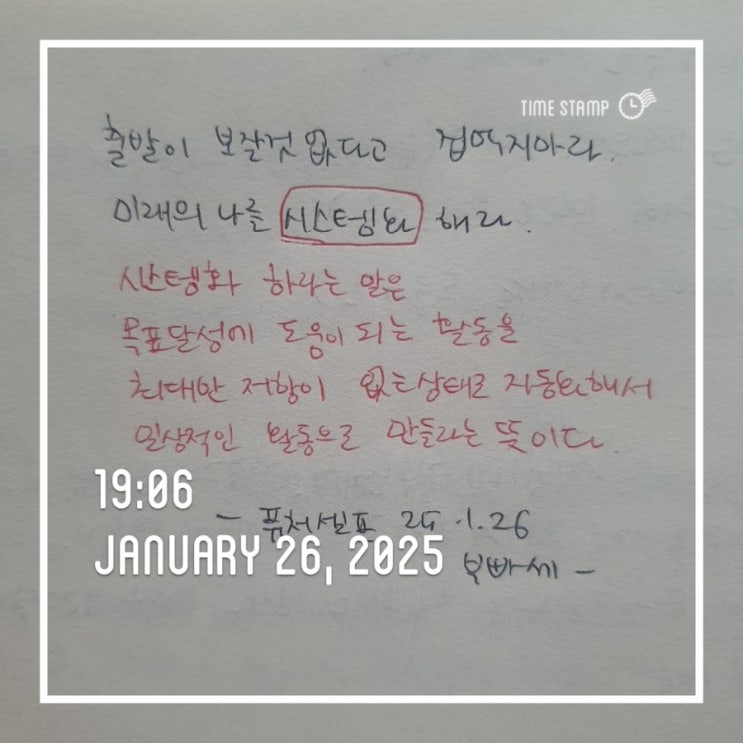 TIME STAMP
출발이 보잘것 없다고 겁먹지마라.
미래의 나를 시스템화 해라.
시스템화 하라는 말은
목표달성에 도움이 되는 활동을
최대한 저항이 없는상태로 자동화해서
일상적인 활동으로 만들라는 뜻이다.
19:06
- 퓨처셀프 25.1.26
JANUARY 26, 2025
부빠세 -